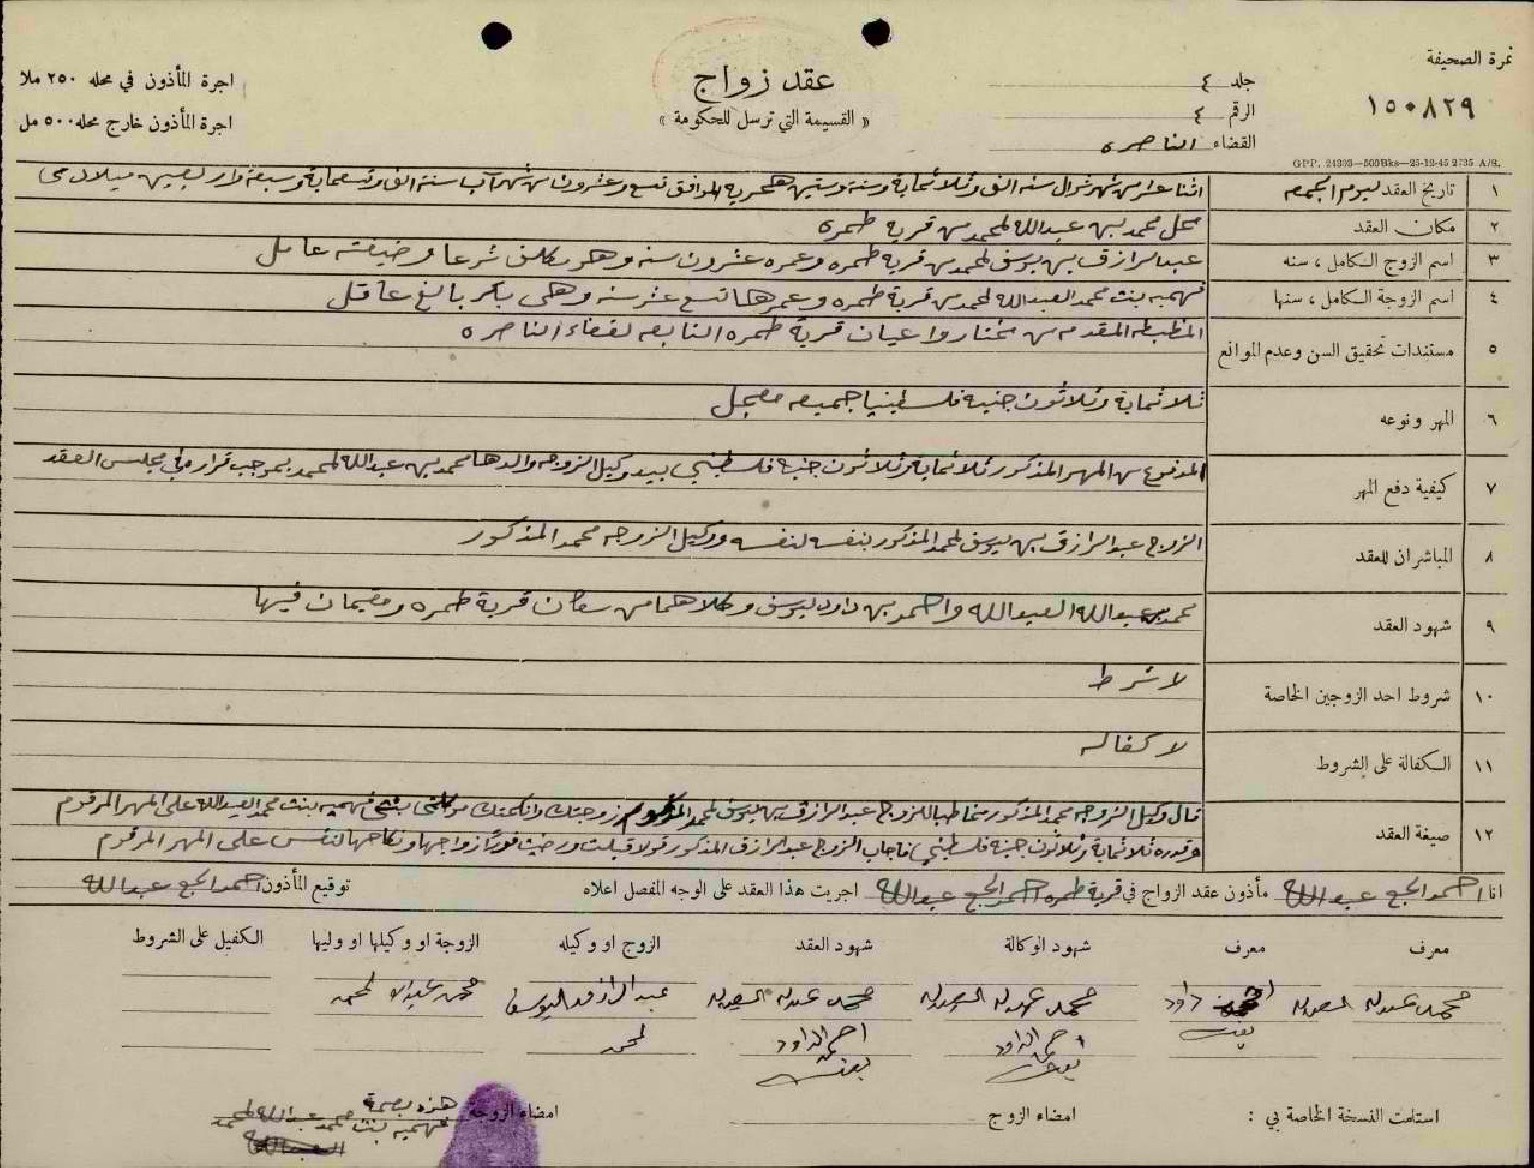 نمرة الصحيفة
١٥٠٨٢٩
جلد ٤
الرقم ٤
القضاء الناصره
عقد زواج
« القسيمة التي ترسل للحكومة »
اجرة المأذون في محله ٢٥٠ ملا
اجرة المأذون خارج محله ٥٠٠ مل
GPP. 24303—500Bks—25-12-45 2735 A/S.
١ تاريخ العقد ليوم الجمعه اثنا عشر من شهر شوال سنه الف وثلاثماية وسته وستين هجرية الموافق تسع وعشرون من شهر آب سنة الف وتسعماية وسبعة واربعين ميلادي
٢ مكان العقد محل محمد بن عبدالله لمحمد من قرية طمره
٣ اسم الزوج الكامل ، سنه عبدالرازق بن يوسف لمحمد من قرية طمره وعمره عشرون سنه وهو مكلف شرعا وضيفته عامل
٤ اسم الزوجة الكامل ، سنها فهميه بنت محمد العبدالله لمحمد من قرية طمره وعمرها تسع عشر سنه وهي باكر بالغ عاقل
٥ مستندات تحقيق السن وعدم الموانع المظبطه المقدمه من مختار واعيان قرية طمره التابعه لقضاء الناصره
٦ المهر ونوعه ثلاثماية وثلاثون جنيه فلسطينيا جميعه معجل
٧ كيفية دفع المهر المدفوع من المهر المذكور ثلاثماية وثلاثون جنيه فلسطيني بيد وكيل الزوجه والدها محمد بن عبدالله لمحمد بموجب قراره في مجلس العقد
٨ المباشران للعقد الزوج عبدالرازق بن يوسف لمحمد المذكور بنفسه لنفسه ووكيل الزوجه محمد المذكور
٩ شهود العقد محمد بن عبدالله العبدالله واحمد بن داود ليوسف وكلاهما من سكان قرية طمره ومقيمان فيها
١٠ شروط احد الزوجين الخاصة لا شرط
١١ الكفالة على الشروط لا كفاله
١٢ صيغة العقد قال وكيل الزوجه محمد المذكور مخاطبا للزوج عبدالرازق بن يوسف لمحمد المذكور زوجتك وانكحتك موكلتي بنتي فهميه بنت محمد العبدالله على المهر المرقوم
وقدره ثلاثماية وثلاثون جنيه فلسطيني فاجاب الزوج عبدالرازق المذكور قولا قبلت ورضيت فورا زواجها ونكاحها لنفسي على المهر المرقوم
انا احمد الحج عبدالله مأذون عقد الزواج في قرية طمره احمد الحج عبدالله اجريت هذا العقد على الوجه المفصل اعلاه توقيع المأذون احمد الحج عبدالله
معرف معرف شهود الوكالة شهود العقد الزوج او وكيله الزوجة او وكيلها او وليها الكفيل على الشروط
محمد عبدله العبدله داود محمد عبدله العبدله محمد عبدله العبدله عبد الرازق اليوسف محمد عبدالله لمحمد
يوسف احمد الداود احمد الداود لمحمد
يوسف يوسف
استلمت النسخة الخاصة بي : امضاء الزوج امضاء الزوجة هذه بصمة
فهميه بنت محمد عبدالله لمحمد